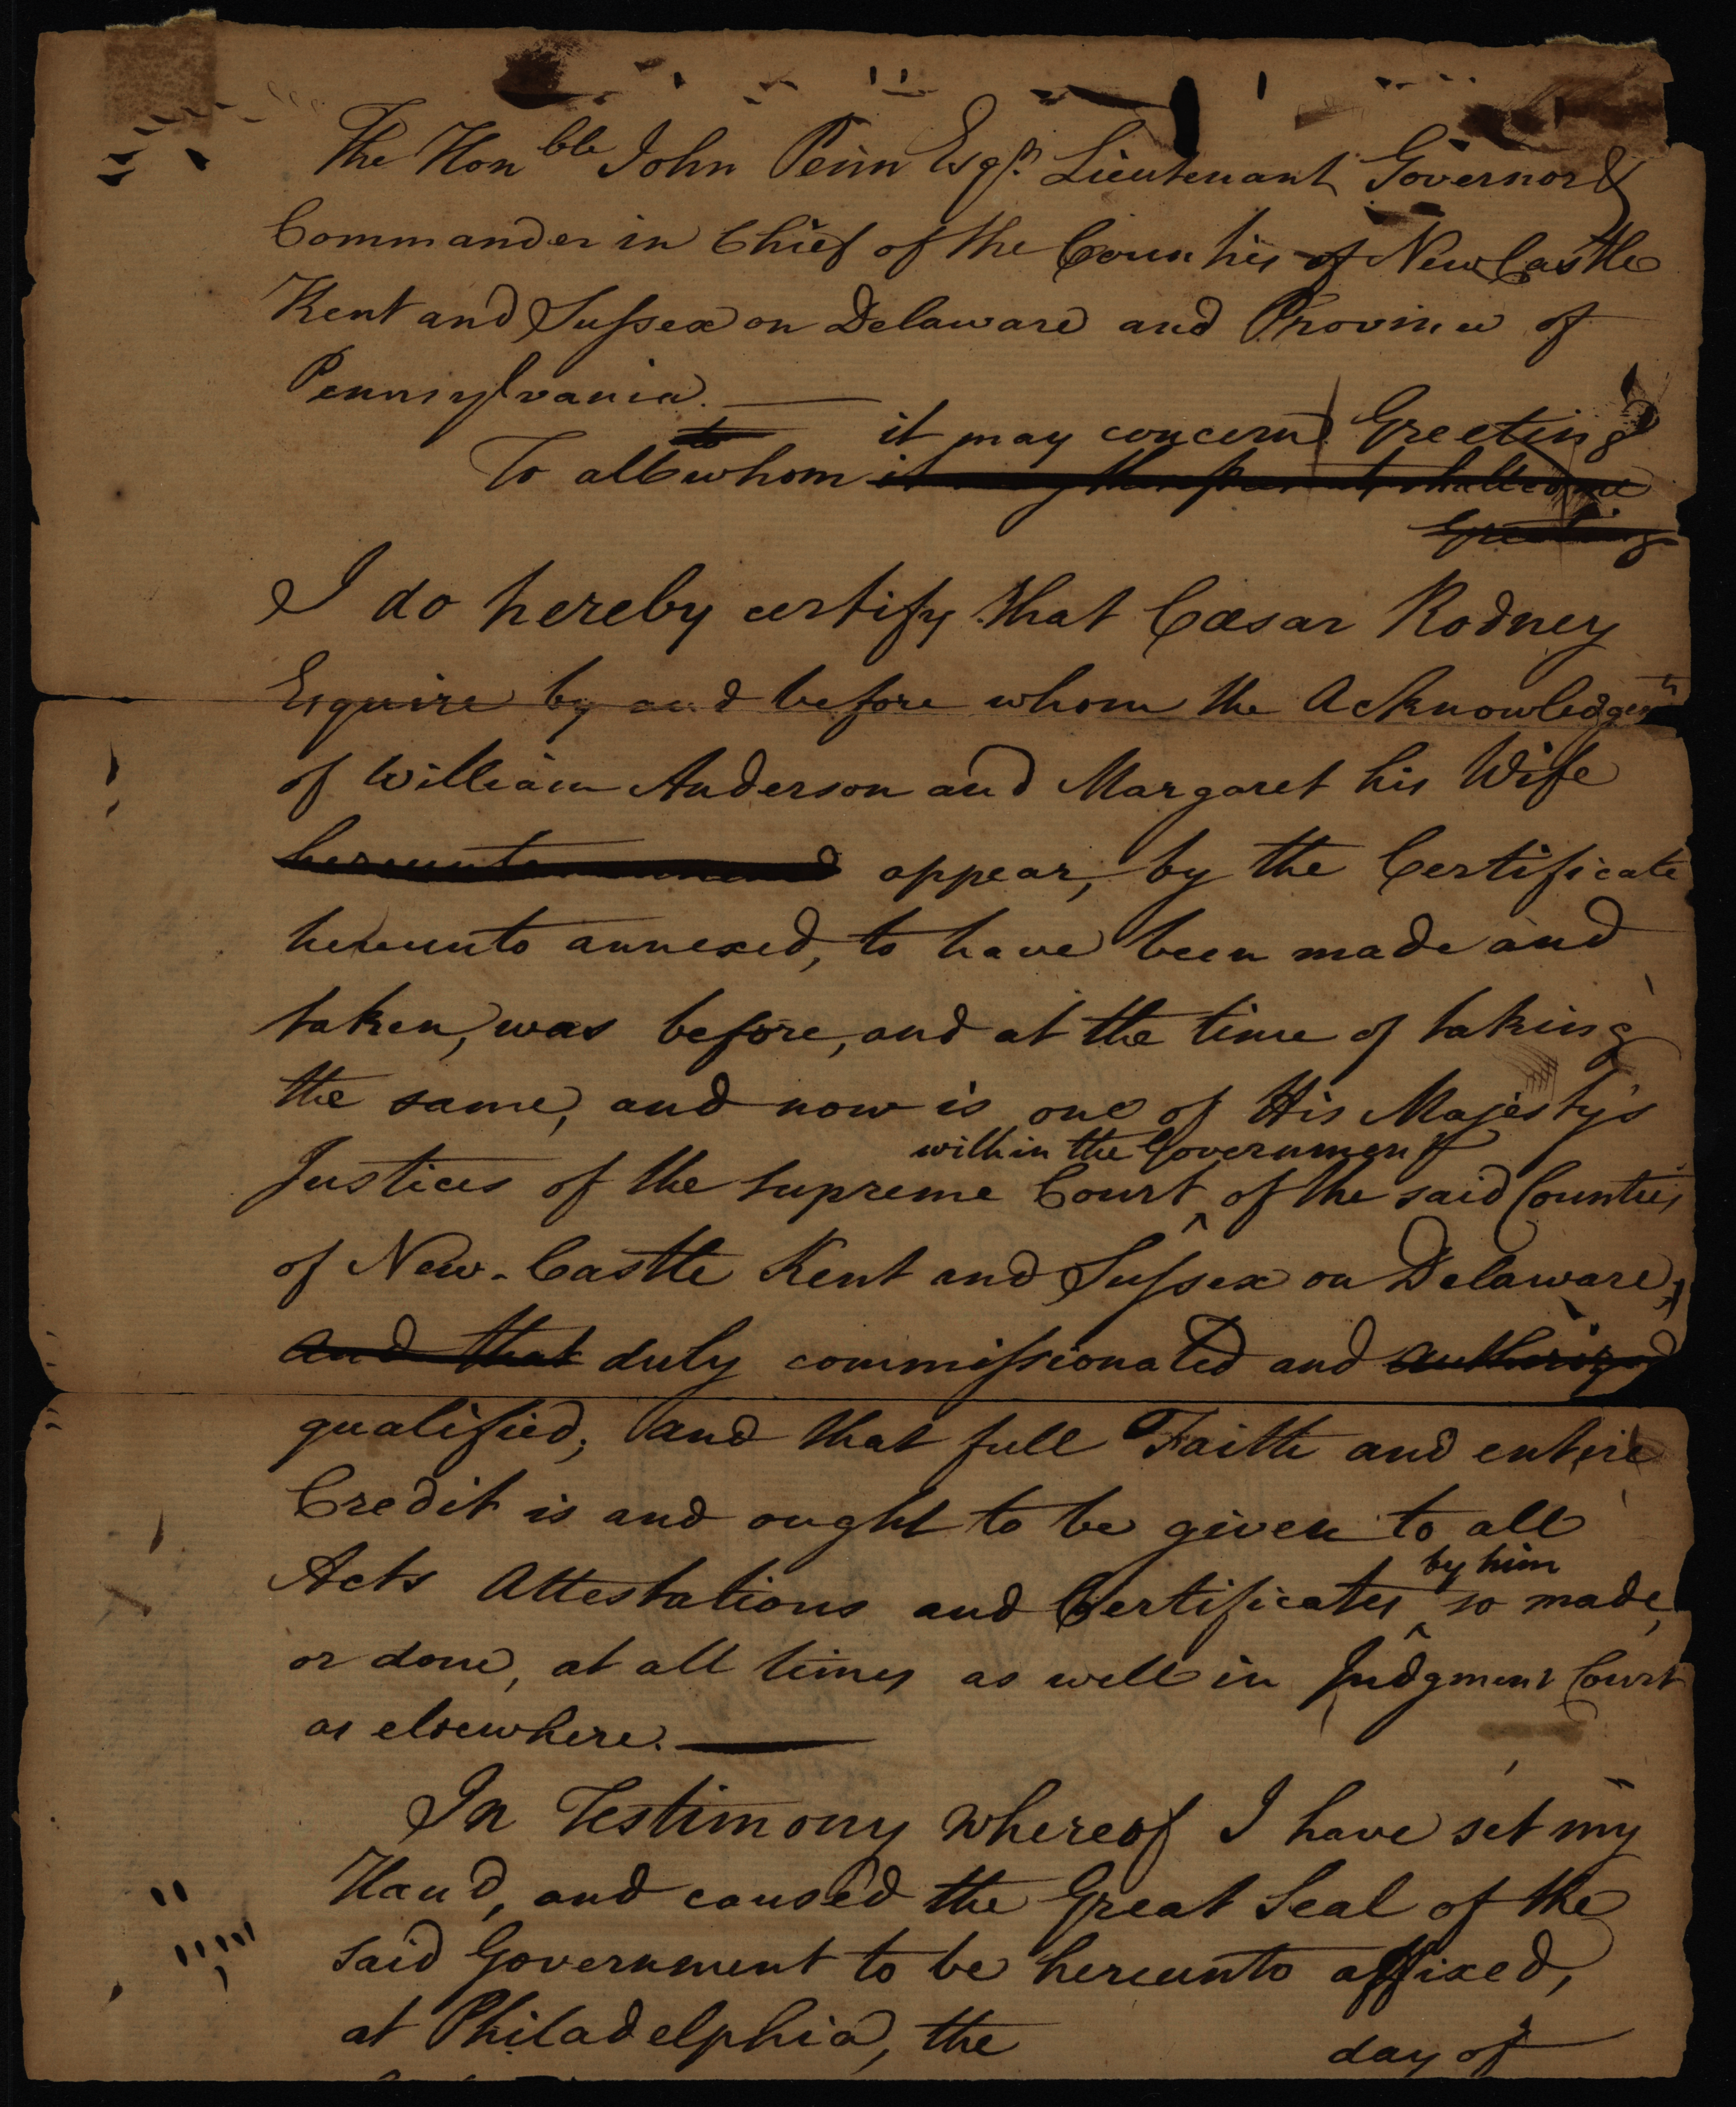 The Honble John Penn Esqr. Lieutenant Governor &
Commander in Chief of the Counties of New Castle
Kent and Sussex on Delaware and Province of
Pennsylvania.
to it may concern Greeting
To all whom it may these presents shall come
Greeting
I do hereby certify that Cæsar Rodney
Esquire by and before whom the Acknowledgemt
of William Anderson and Margaret his Wife
hereunto annexed appear, by the Certificate
hereunto annexed, to have been made and
taken, was before, and at the time of taking
the same, and now is one of His Majesty's
within the Government
Justices of the supreme Court ^ of the said Counties
of New-Castle Kent and Sussex on Delaware,
and that duly commissionated and authorized
qualified; and that full Faith and entire
Credit is and ought to be given to all
by him
Acts Attestations and Certificates ^ so made,
or done, at all times as well in Judgment Court
as elsewhere.
In Testimony whereof I have set my
Hand, and caused the Great Seal of the
said Government to be hereunto affixed,
at Philadelphia, the day of